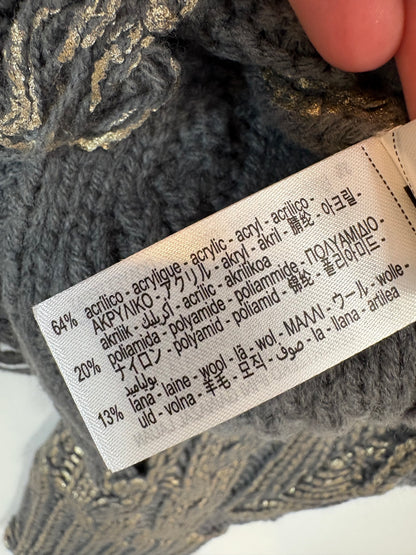 64% acrílico - acrylique - acrylic - acryl - acrilico -
ΑΚΡΥΛΙΚΟ - アクリル - akryl - akril - 腈纶 - 아크릴 -
akrilik - أكريليك - acrilic - akrilikoa
20% poliamida - polyamide - poliammide - ΠΟΛΥΑΜΙΔΙΟ -
ナイロン - polyamid - poliamid - 锦纶 - 폴리아미드 -
بوليأميد
13% lana - laine - wool - lã - wol - ΜΑΛΛΙ - ウール - wolle -
uld - volna - 羊毛 - 모직 - صوف - la - llana - artilea